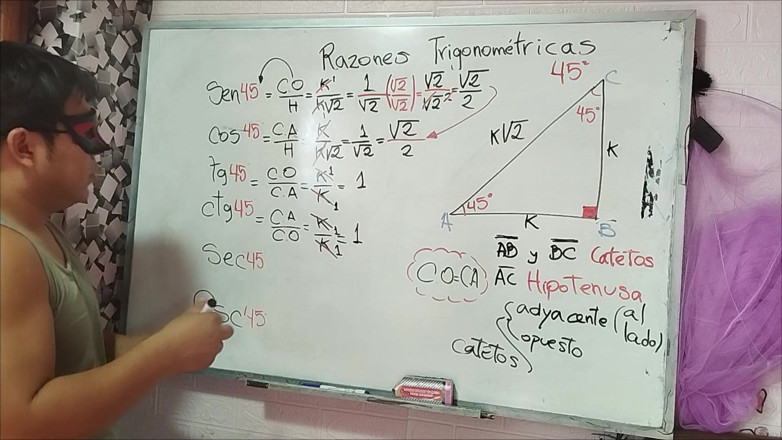 Razones Trigonométricas
45°
Sen45 = CO/H = K1/K√2 = 1/√2 (√2/√2) = √2/√2² = √2/2
Cos45 = CA/H = K/K√2 = 1/√2 = √2/2
tg45 = CO/CA = K1/K1 = 1
Ctg45 = CA/CO = K1/K1 = 1
Sec45
Csc45
C
45°
K√2
K
A
45°
K
B
AB y BC Catetos
CO=CA
AC Hipotenusa
Catetos { adyacente (al lado)
opuesto